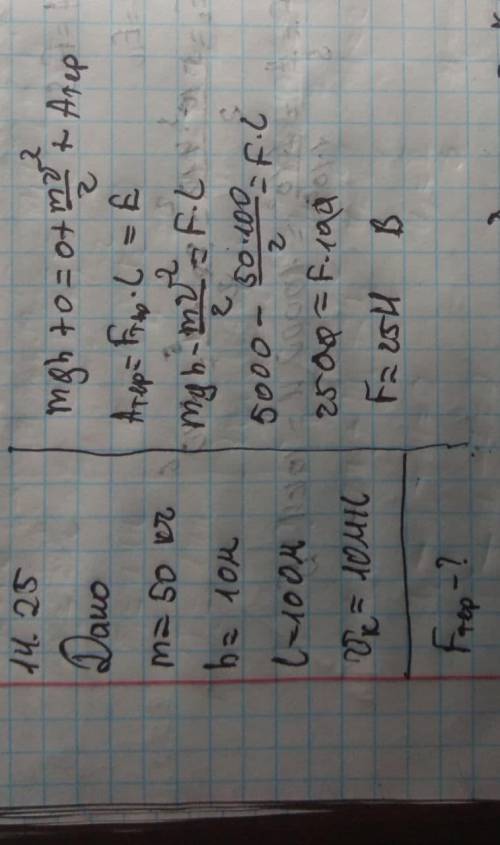 14.25
Дано
m = 50 кг
h = 10м
l = 100м
v_к = 10м/с
F_тр - ?
mgh + 0 = 0 + mv²/2 + A_тр
A_тр = F_тр · l = E
mgh - mv²/2 = F · l
5000 - 50·100/2 = F · l
2500 = F · 100
F = 25Н В